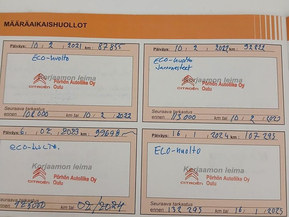 MÄÄRÄAIKAISHUOLLOT
Päiväys: 10 / 2 2021 km: 87855
ECO-huolto
Korjaamon leima
Pörhön Autoliike Oy
Oulu
CITROËN
Seuraava tarkastus
ennen: km tai 10 / 2
Päiväys: 10 / 2 km:
ECO-huolto
Korjaamon leima
Pörhön Autoliike Oy
Oulu
CITROËN
Seuraava tarkastus
ennen: 115 000 km tai 10 / 2
Päiväys: 6. 02. 2023 km: 99648
eco-huolto.
Korjaamon leima
Pörhön Autoliike Oy
Oulu
CITROËN
Seuraava tarkastus
ennen: km tai 02/2024
Päiväys: 16 / 1 2024 km: 107 295
ECO-huolto
Korjaamon leima
Pörhön Autoliike Oy
Oulu
CITROËN
Seuraava tarkastus
ennen: 132 295 km tai 16 / 1 2025